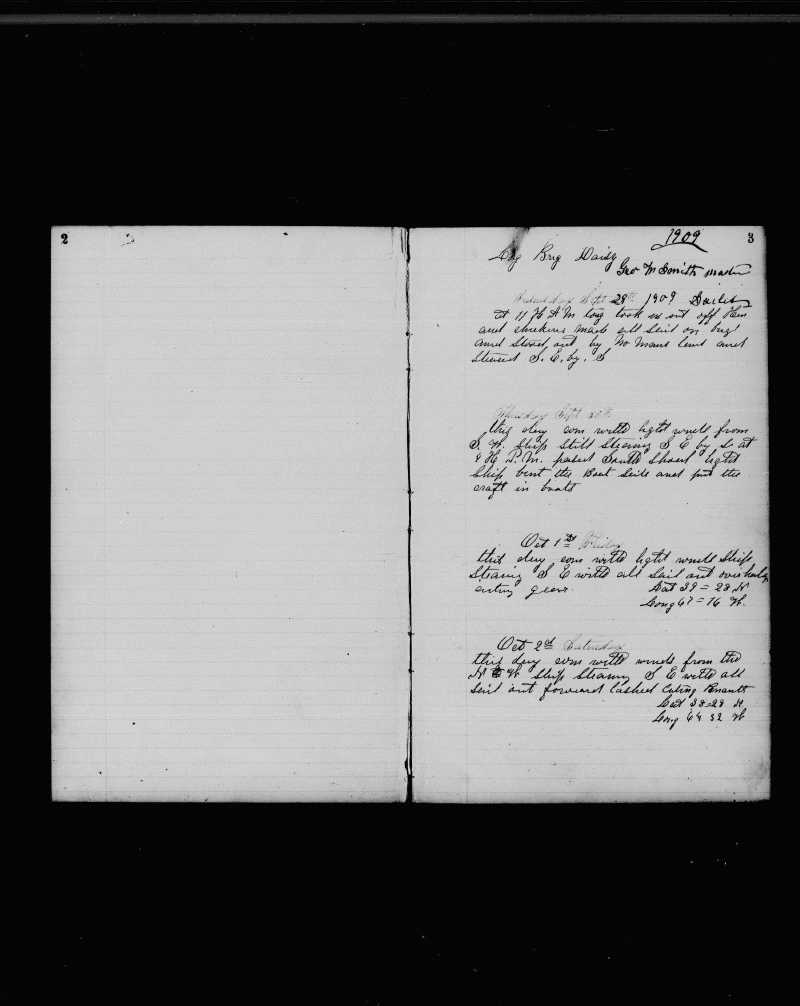 2
1909
3
Log Brig Daisy
Geo M Smith master
Wednesday Sept 29th 1909 Sailed
at 11 H A M tug took us out off Hen
and chickens made all Sail on brig
and Stood out by No Mans land and
Steared S. E. by. S
Thursday Sept 30th
this day com with light winds from
S. W. Ship Still Stearing S E by S at
H P.M. passed South Shoal light
Ship bent the Boat Sails and put the
craft in boats
Oct 1st Friday
this day com with light winds Ship
Stearing S E with all Sail out overhauling
cuting gear
Lat 39 = 28 N
Long 67 = 16 W.
Oct 2d Saturday
this day com with winds from the
N W Ship Stearing S E with all
Sail out forward lashed Cuting
Lat 38=28 N
Long 64 52 W